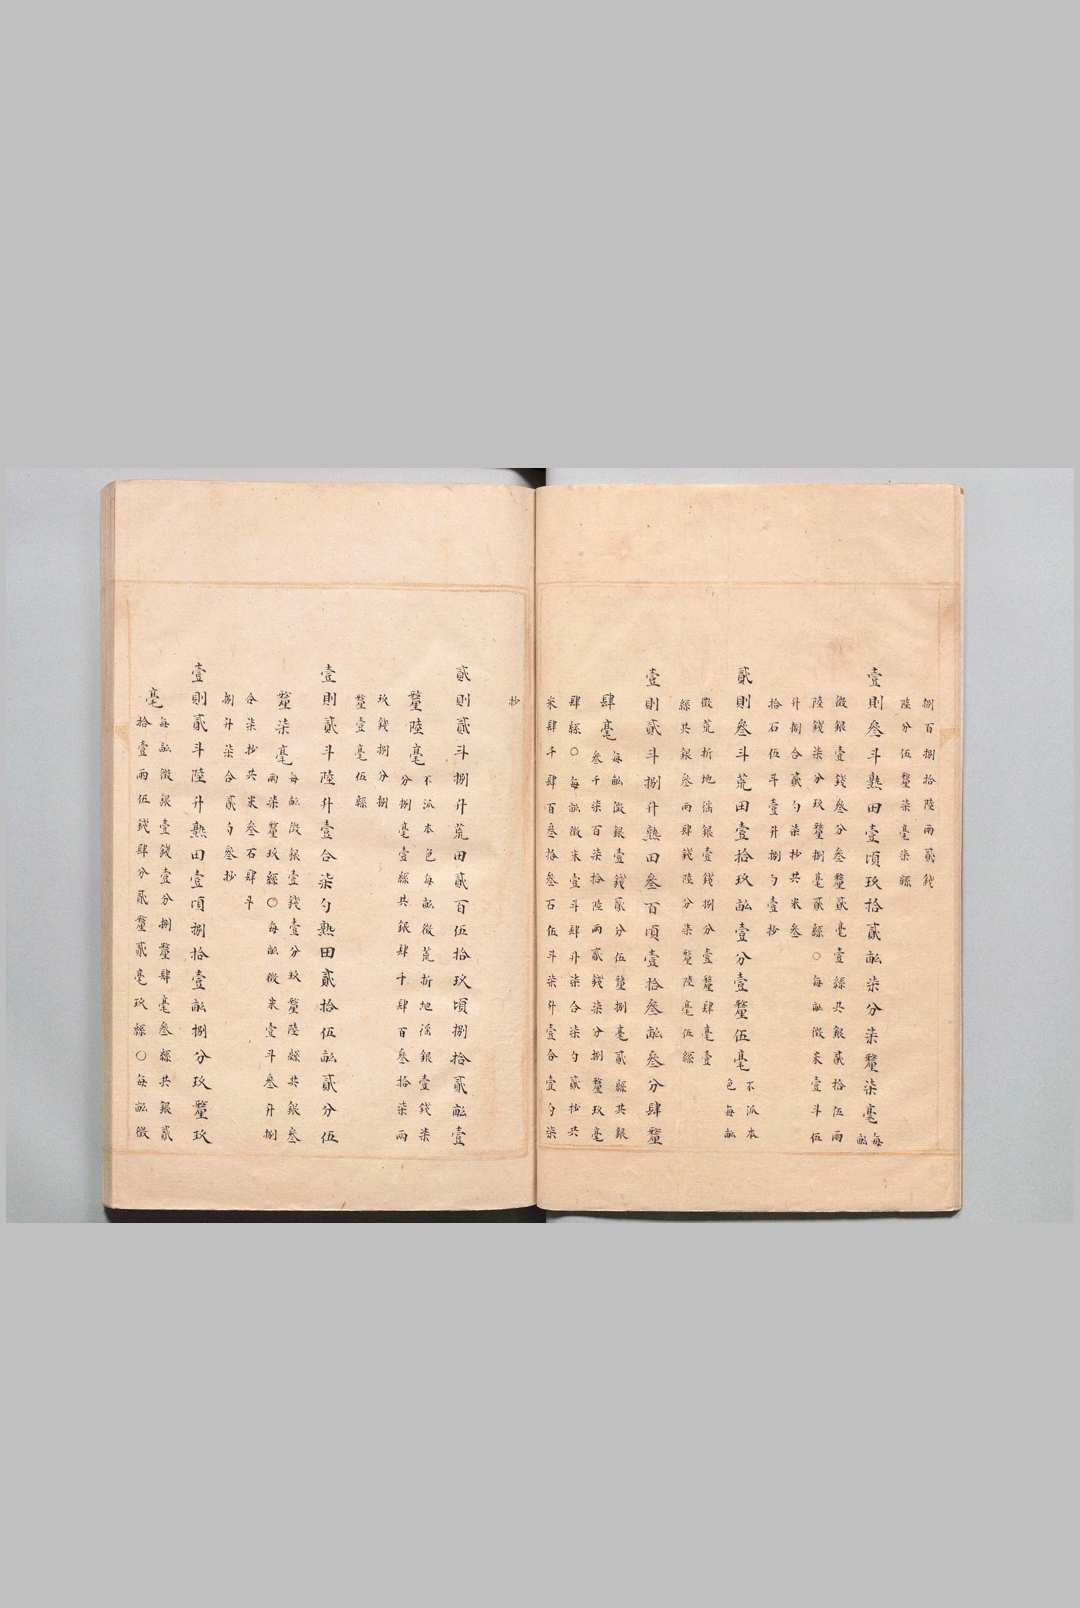 捌百捌拾陸兩貳錢
陸分伍釐柒毫柒絲
壹則叄斗熟田壹頃玖拾貳畝柒分柒釐柒毫每畝
徵銀壹錢叄分叄釐貳毫壹絲共銀貳拾伍兩
陸錢柒分玖釐捌毫貳絲○每畝徵米壹斗伍
升捌合貳勺柒抄共米叄
拾石伍斗壹升捌勺壹抄
貳則叄斗荒田壹拾玖畝壹分壹釐伍毫不派本色每畝
徵荒折地信銀壹錢捌分壹釐肆毫壹
絲共銀叄兩肆錢陸分柒釐陸毫伍絲
壹則貳斗捌升熟田叄百頃壹拾叄畝叄分肆釐
肆毫每畝徵銀壹錢貳分伍釐捌毫貳絲共銀
叄千柒百柒拾陸兩貳錢柒分捌釐玖毫
肆絲○每畝徵米壹斗肆升柒合柒勺貳抄共
米肆千肆百叄拾叄石伍斗柒升壹合壹勺柒
抄
貳則貳斗捌升荒田貳百伍拾玖頃捌拾貳畝壹
釐陸毫不派本色每畝徵荒折地信銀壹錢柒
分捌毫壹絲共銀肆千肆百叄拾柒兩
玖錢捌分捌
釐壹毫伍絲
壹則貳斗陸升壹合柒勺熟田貳拾伍畝貳分伍
釐柒毫每畝徵銀壹錢壹分玖釐陸絲共銀叄
兩柒釐玖絲○每畝徵米壹斗叄升捌
合柒抄共米叄石肆斗
捌升柒合貳勺叄抄
壹則貳斗陸升熟田壹頃捌拾壹畝捌分玖釐玖
毫每畝徵銀壹錢壹分捌釐肆毫叄絲共銀貳
拾壹兩伍錢肆分貳釐貳毫玖絲○每畝徵